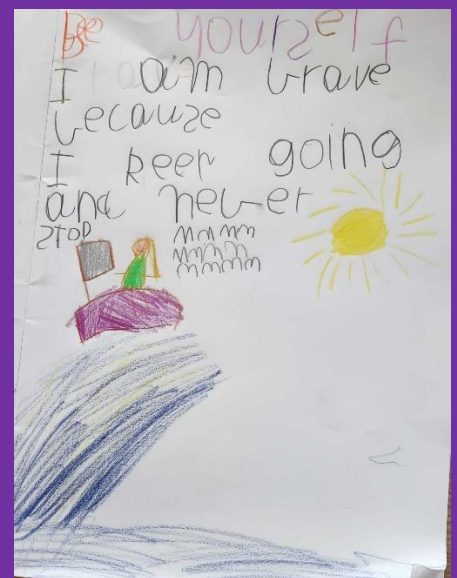 Be yourself
I am brave
because
I keep going
and never
stop